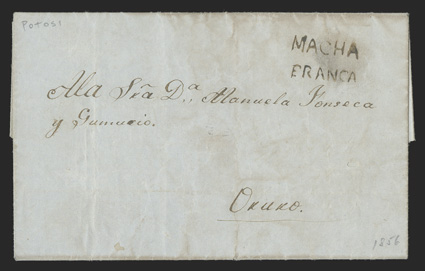 POTOSI
MACHA
FRANCA
A la Srã Dª. Manuela Fonseca
y Gumucio.
Oruro.
1856